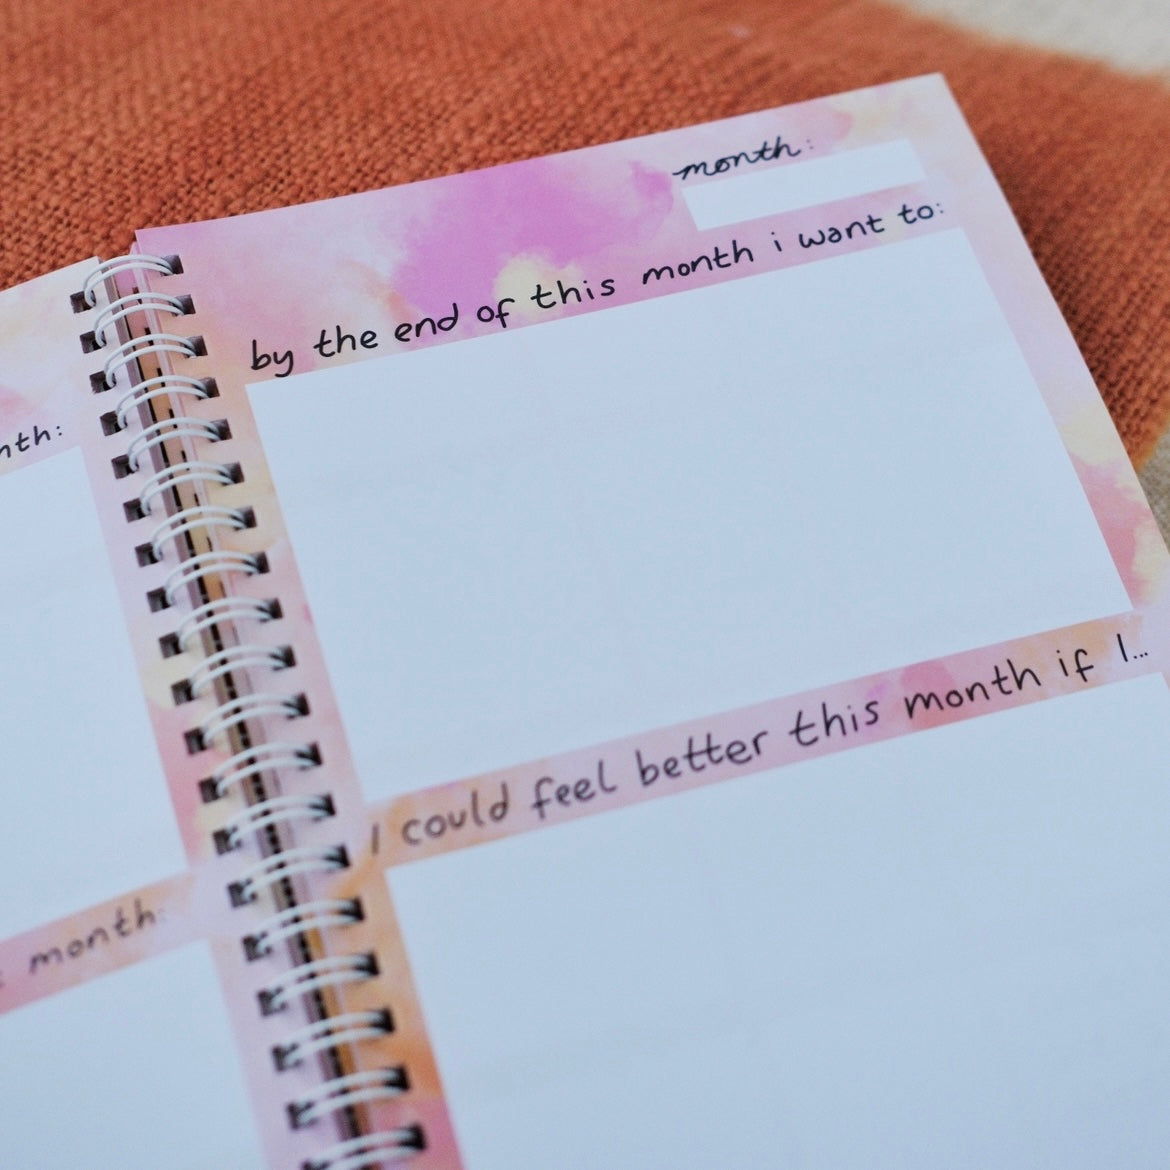 month:
month:
by the end of this month i want to:
month:
I could feel better this month if I...